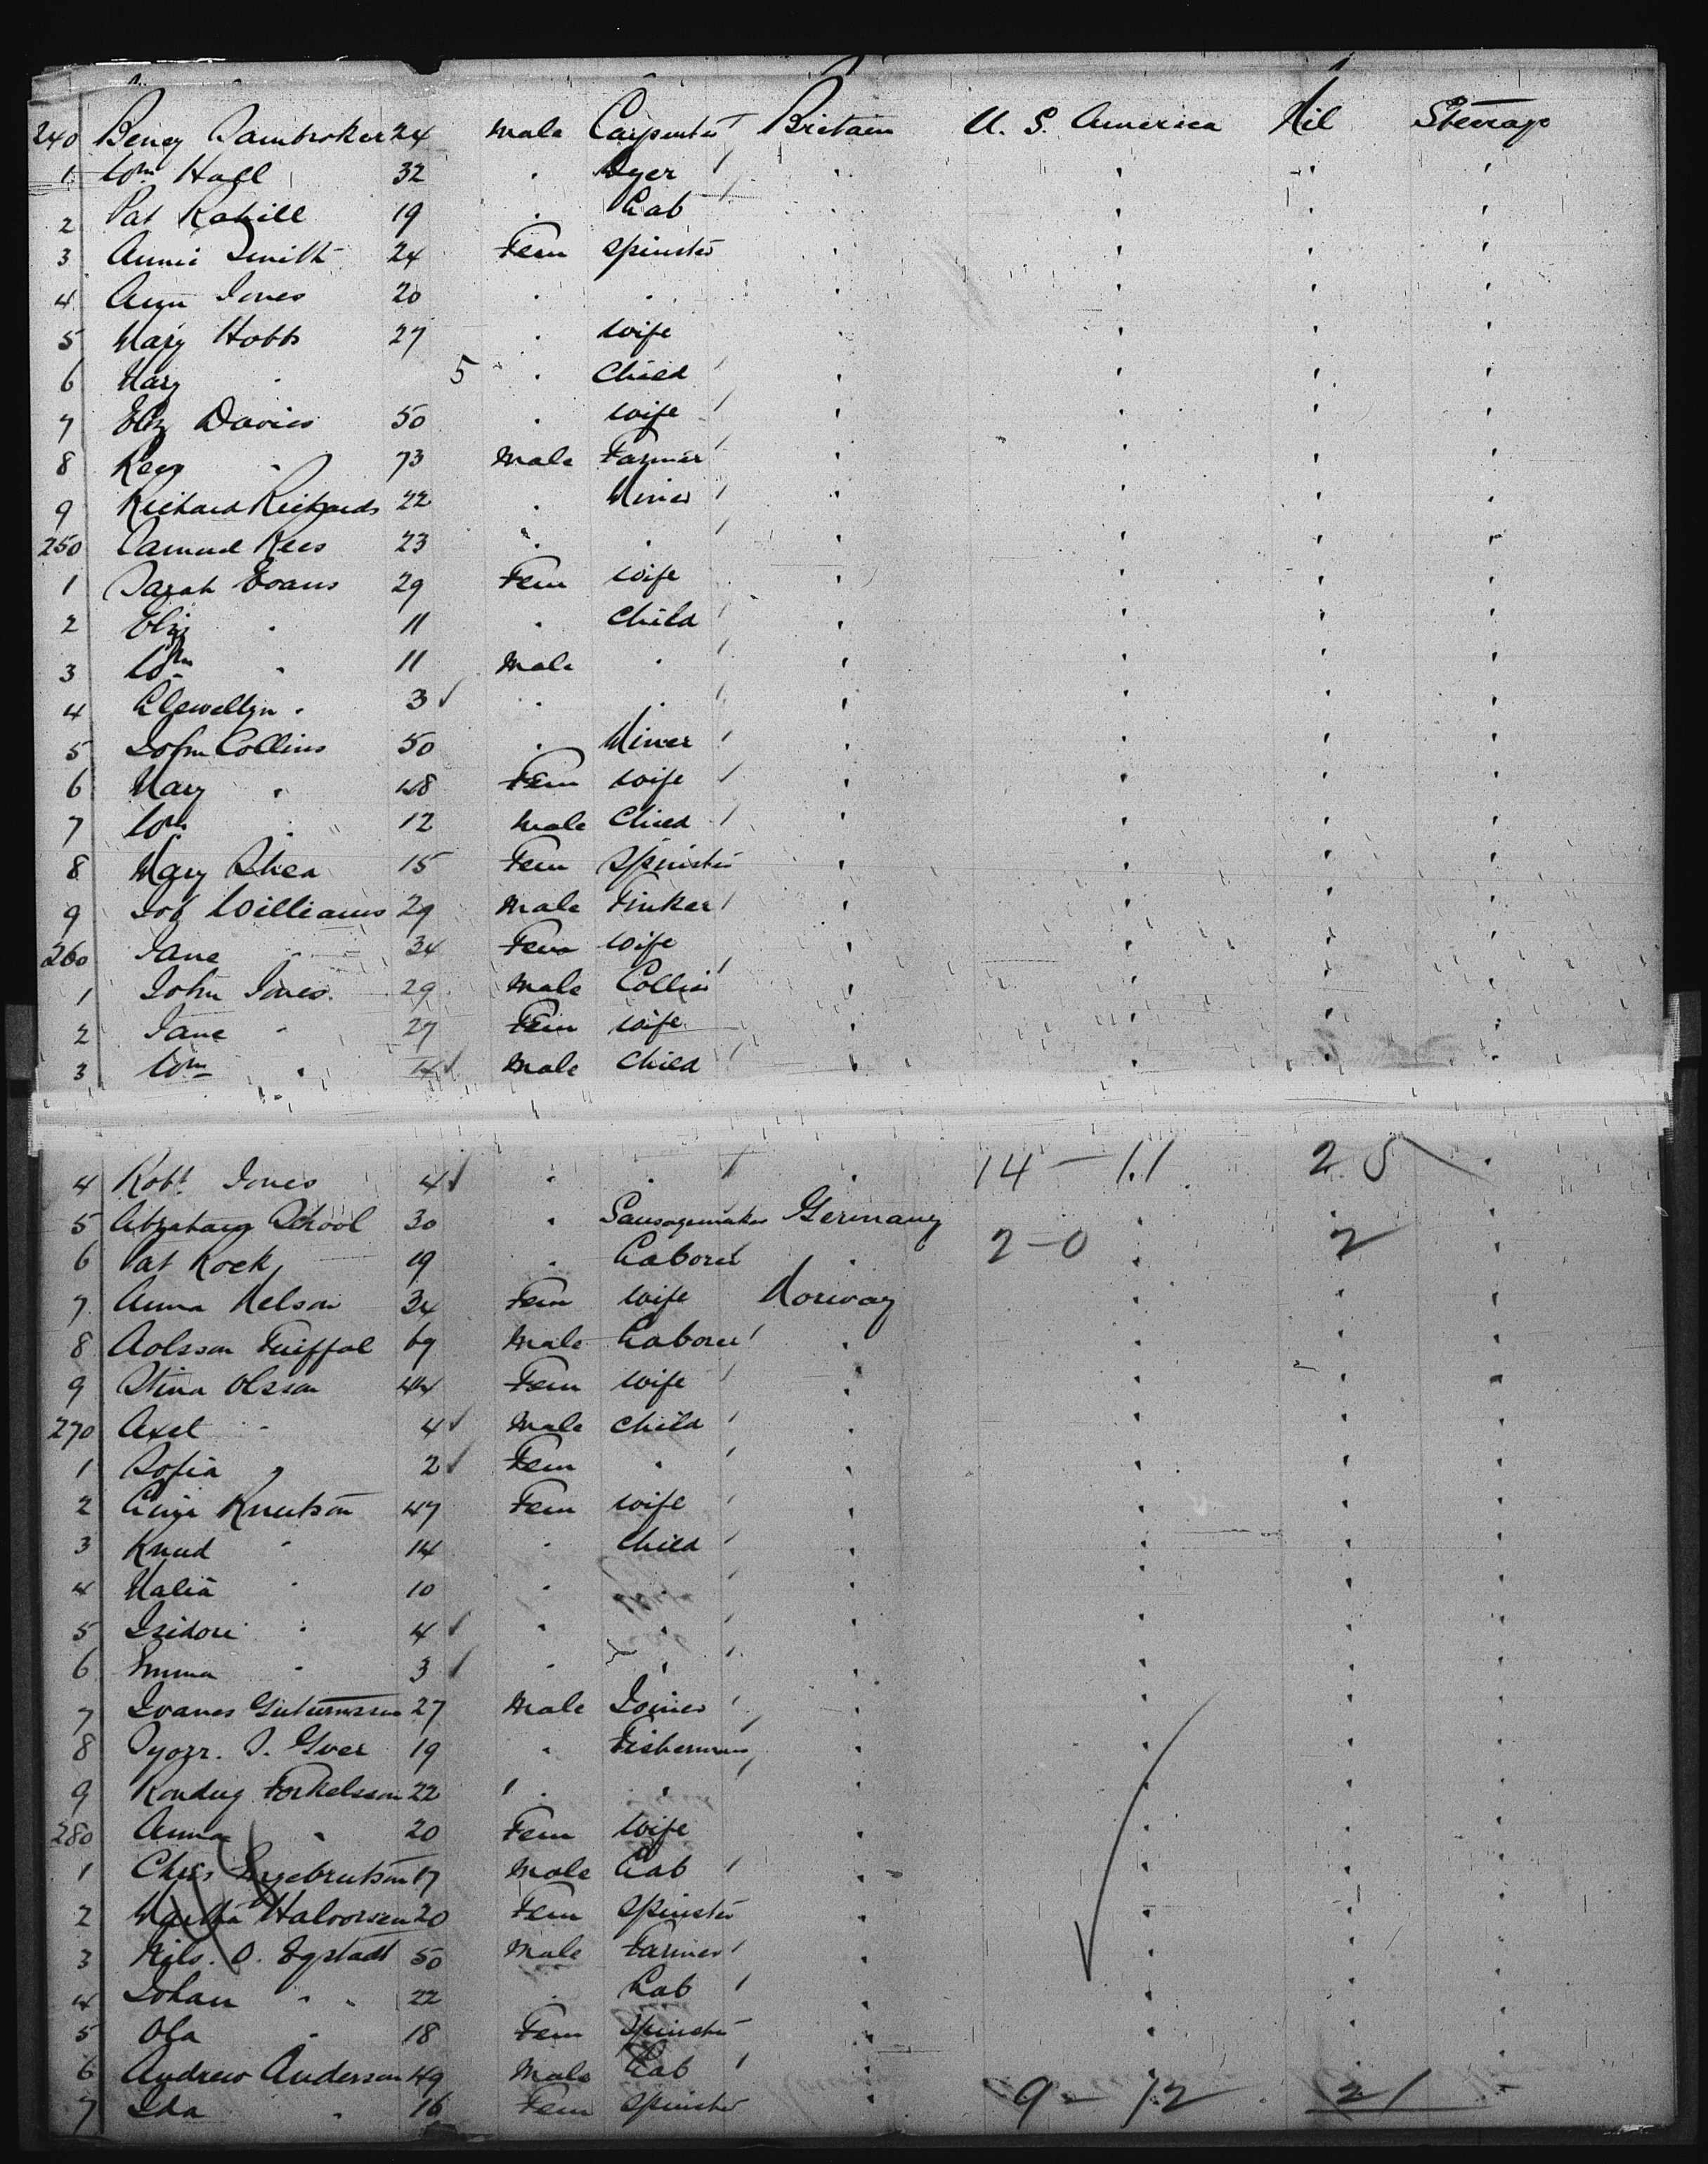 240 Beney Sambroker 24 male Carpenter Britain U. S. America Nil Steerage
1 Wm Hall 32 " Dyer " " " "
2 Pat Kahill 19 " Lab " " " "
3 Annie Smith 24 Fem Spinster " " " "
4 Ann Jones 20 " " " " " "
5 Mary Hobbs 27 " Wife " " " "
6 Mary " 5 " Child " " " "
7 Eliz Davies 50 " Wife " " " "
8 Rees " 73 Male Farmer " " " "
9 Richard Richards 22 " Miner " " " "
250 Samuel Rees 23 " " " " " "
1 Sarah Evans 29 Fem Wife " " " "
2 Eliz " 11 " Child " " " "
3 Wm " 11 Male " " " " "
4 Llewellyn " 3 " " " " " "
5 John Collins 50 " Miner " " " "
6 Mary " 48 Fem Wife " " " "
7 Wm " 12 Male Child " " " "
8 Mary Shea 15 Fem Spinster " " " "
9 Job Williams 29 Male Tinker " " " "
260 Jane " 34 Fem Wife " " " "
1 John Jones 29 Male Collier " " " "
2 Jane " 27 Fem Wife " " " "
3 Wm " Male Child " " " "
4 Robt Jones 4 " " " 14 - 11 25 "
5 Abraham School 30 " Sausagemaker Germany " " "
6 Pat Rock 19 " Laborer " 2 - 0 2 "
7 Anna Nelson 34 Fem Wife Norway " " "
8 Aolsson 69 Male Laborer " " " "
9 Stina Olsson 44 Fem Wife " " " "
270 Axel " 4 Male Child " " " "
1 Sofia " 2 Fem " " " " "
2 Knutson 47 Fem Wife " " " "
3 Knud " 14 " Child " " " "
4 Malia " 10 " " " " " "
5 Isidore " 4 " " " " " "
6 Emma " 3 " " " " " "
7 27 Male Joiner " " " "
8 19 " Fisherman " " " "
9 Torkelsson 22 " " " " " "
280 Anna " 20 Fem Wife " " " "
1 Chrs Ingebrutson 17 Male Lab " " " "
2 Martha Halvorsen 20 Fem Spinster " " " "
3 Nils. O. Egstadt 50 Male Farmer " " " "
4 Johan " " 22 " Lab " " " "
5 Ola " 18 Fem Spinster " " " "
6 Andrew Anderson 49 Male Lab " " " "
7 Ida " 16 Fem Spinster " 9 - 12 21 "